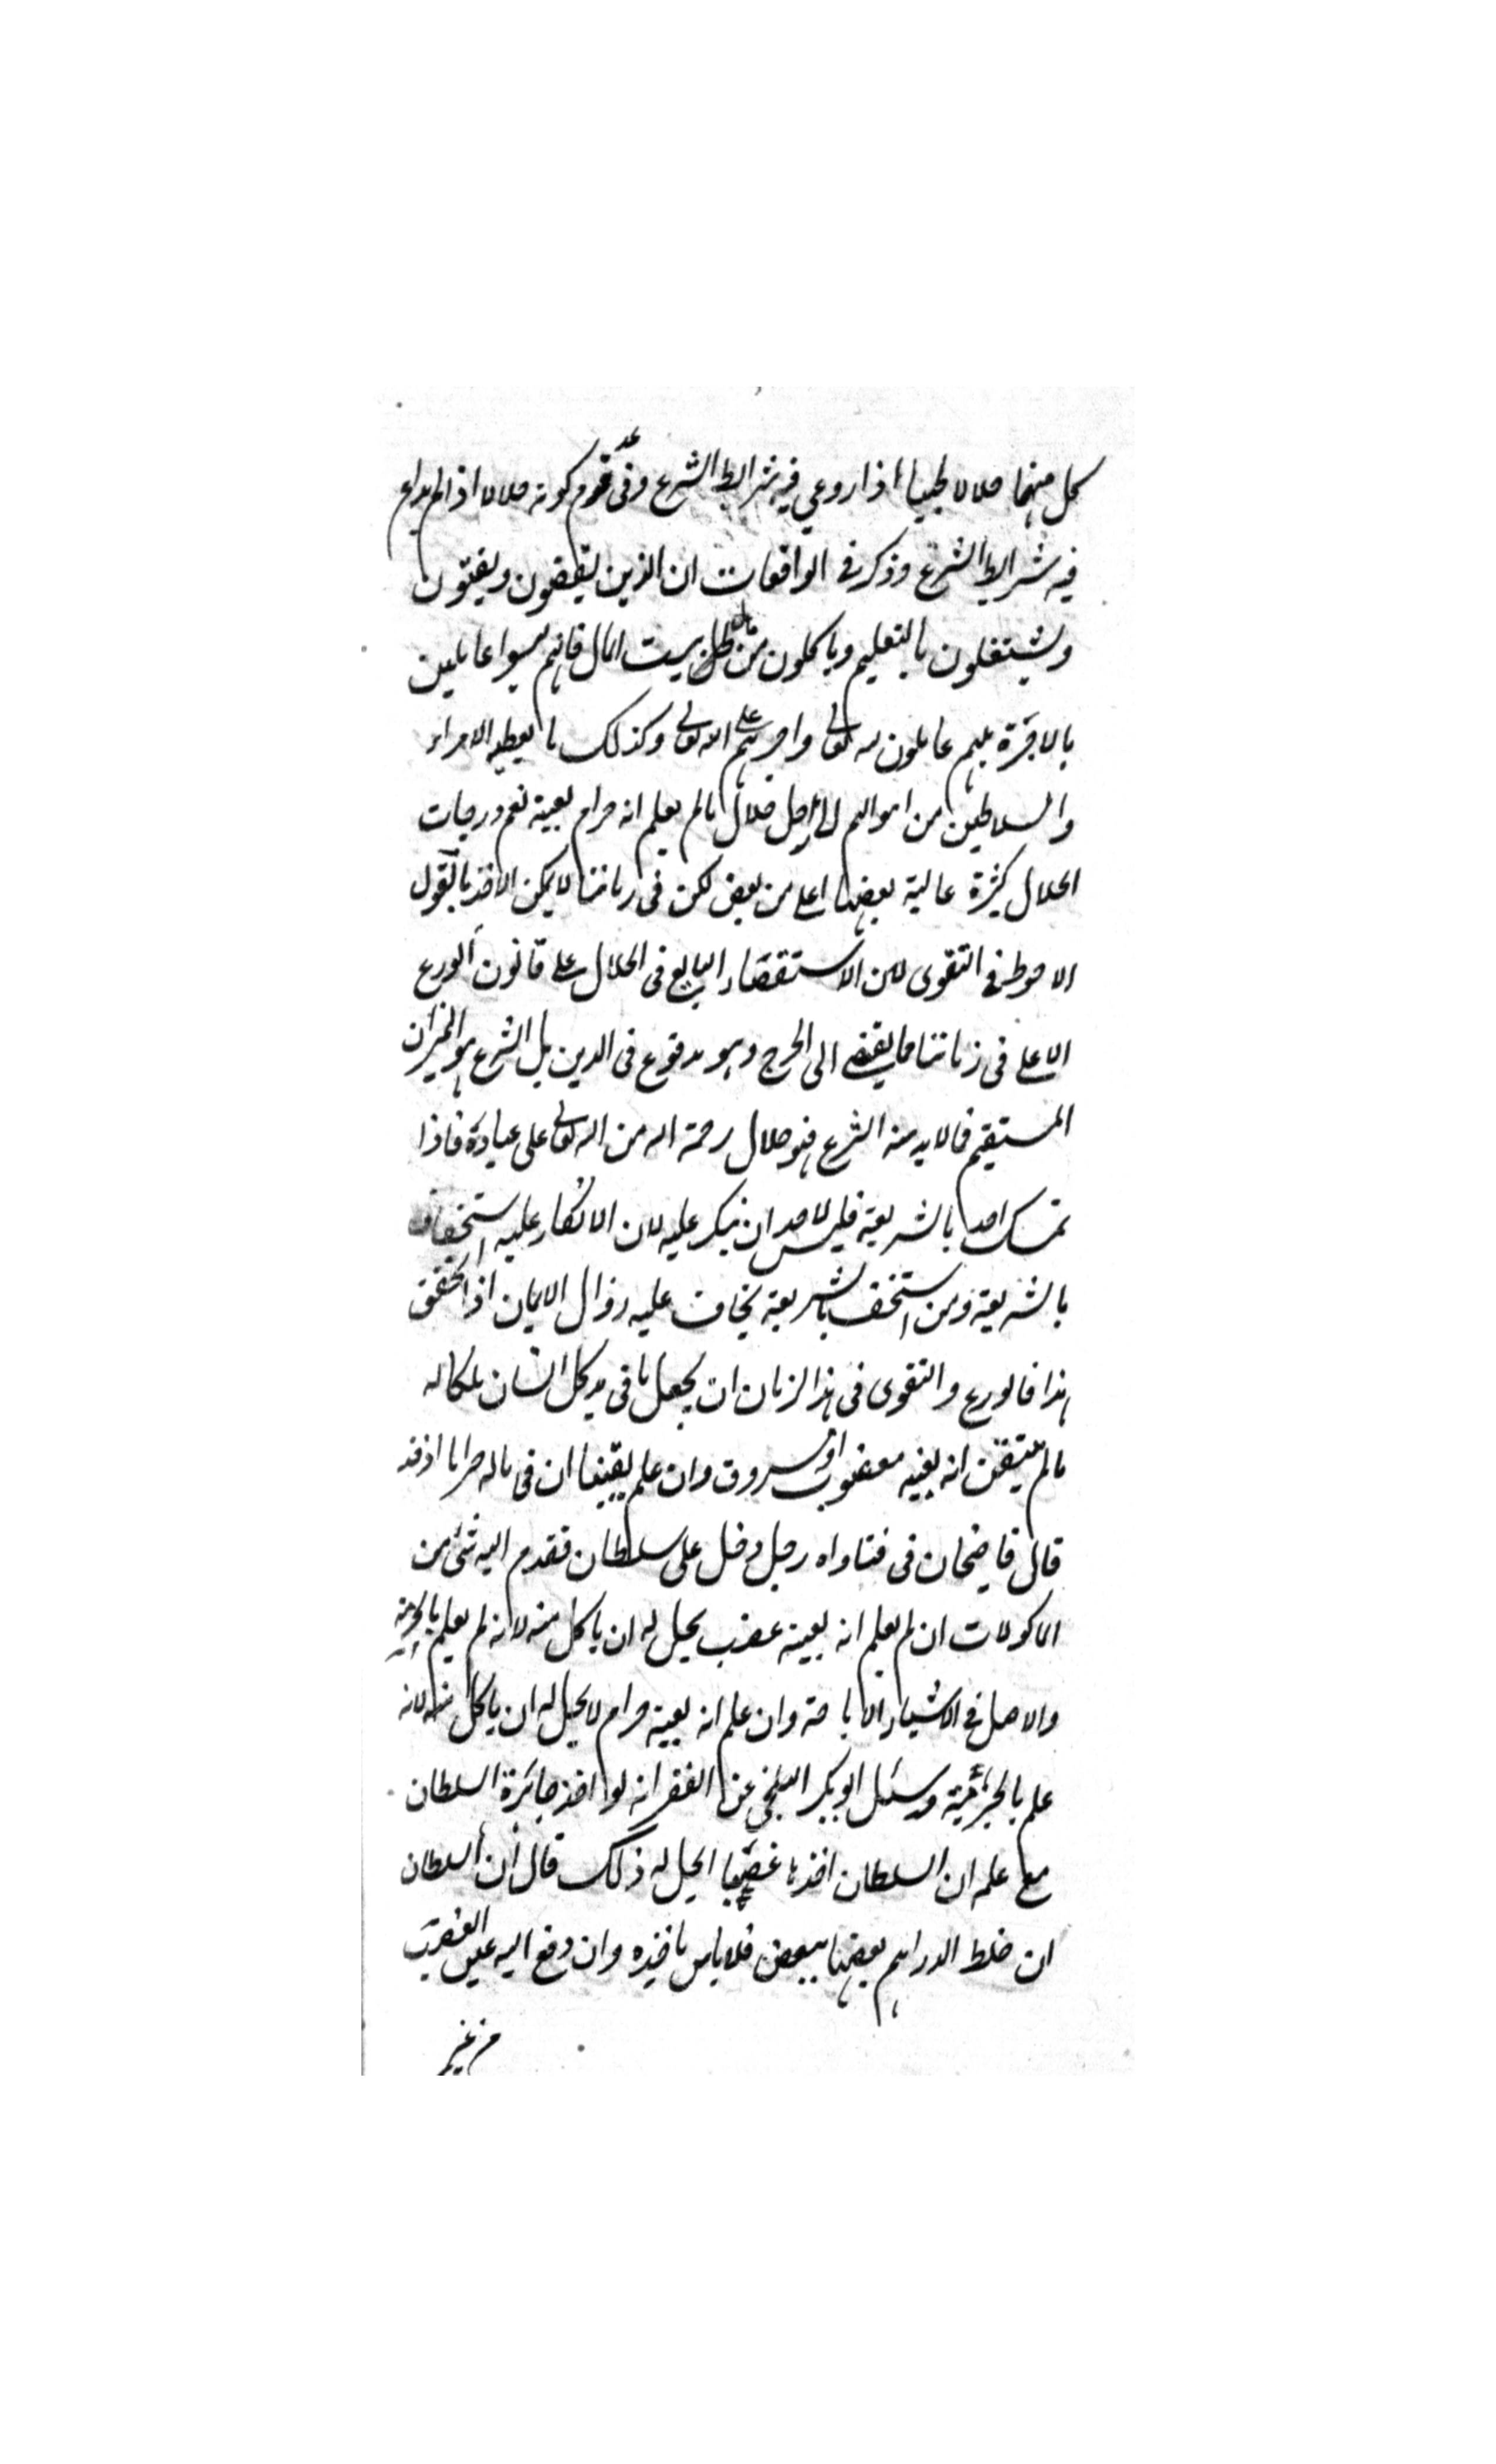 كل منهما حلالا طيبا اذا روعي فيه شرايط الشرع وفى عدم كونه حلالا اذا لم يراع
فيه شرايط الشرع وذكر في الواقعات ان الذين يقضون ويفتون
ويشتغلون بالتعليم وياكلون من مال بيت المال فانهم ليسوا عاملين
بالاجرة بل هم عاملون لله تعالى واجرهم على الله تعالى وكذلك ما يعطيه الامراء
والسلاطين من اموالهم حلال ما لم يعلم انه حرام بعينه نعم درجات
الحلال كثيرة عالية بعضها اعلى من بعض لكن فى زماننا لا يمكن الاخذ بالقول
الاحوط في التقوى لان الاستقصاء البالغ فى الحلال على قانون الورع
الاعلى فى زماننا مما يفضي الى الحرج وهو مدفوع فى الدين بل الشرع هو الميزان
المستقيم فما لابد منه الشرع فهو حلال رحمة الله من الله تعالى على عباده فاذا
تمسك احد بالشريعة فليس لاحد ان ينكر عليه لان الانكار عليه استخفاف
بالشريعة ومن استخف بالشريعة يخاف عليه زوال الايمان اذا تحقق
هذا فالورع والتقوى فى هذا الزمان ان يجعل ما فى يد كل انسان ملكا له
ما لم يتيقن انه بعينه مغصوب او مسروق وان علم يقينا ان فى ماله حراما اذ قد
قال قاضيخان فى فتاواه رجل دخل على سلطان فقدم اليه شئ من
الماكولات ان لم يعلم انه بعينه غصب يحل له ان ياكل منه لانه لم يعلم بالحرمة
والاصل في الاشياء الاباحة وان علم انه بعينه حرام لا يحل له ان ياكل منه لانه
علم بالحرمة وسئل ابو بكر البلخي عن الفقير انه لو اخذ جائزة السلطان
مع علمه ان السلطان اخذها غصبا ايحل له ذلك قال ان السلطان
ان خلط الدراهم بعضها ببعض فلا باس باخذه وان دفع اليه عين الغصب
من غير